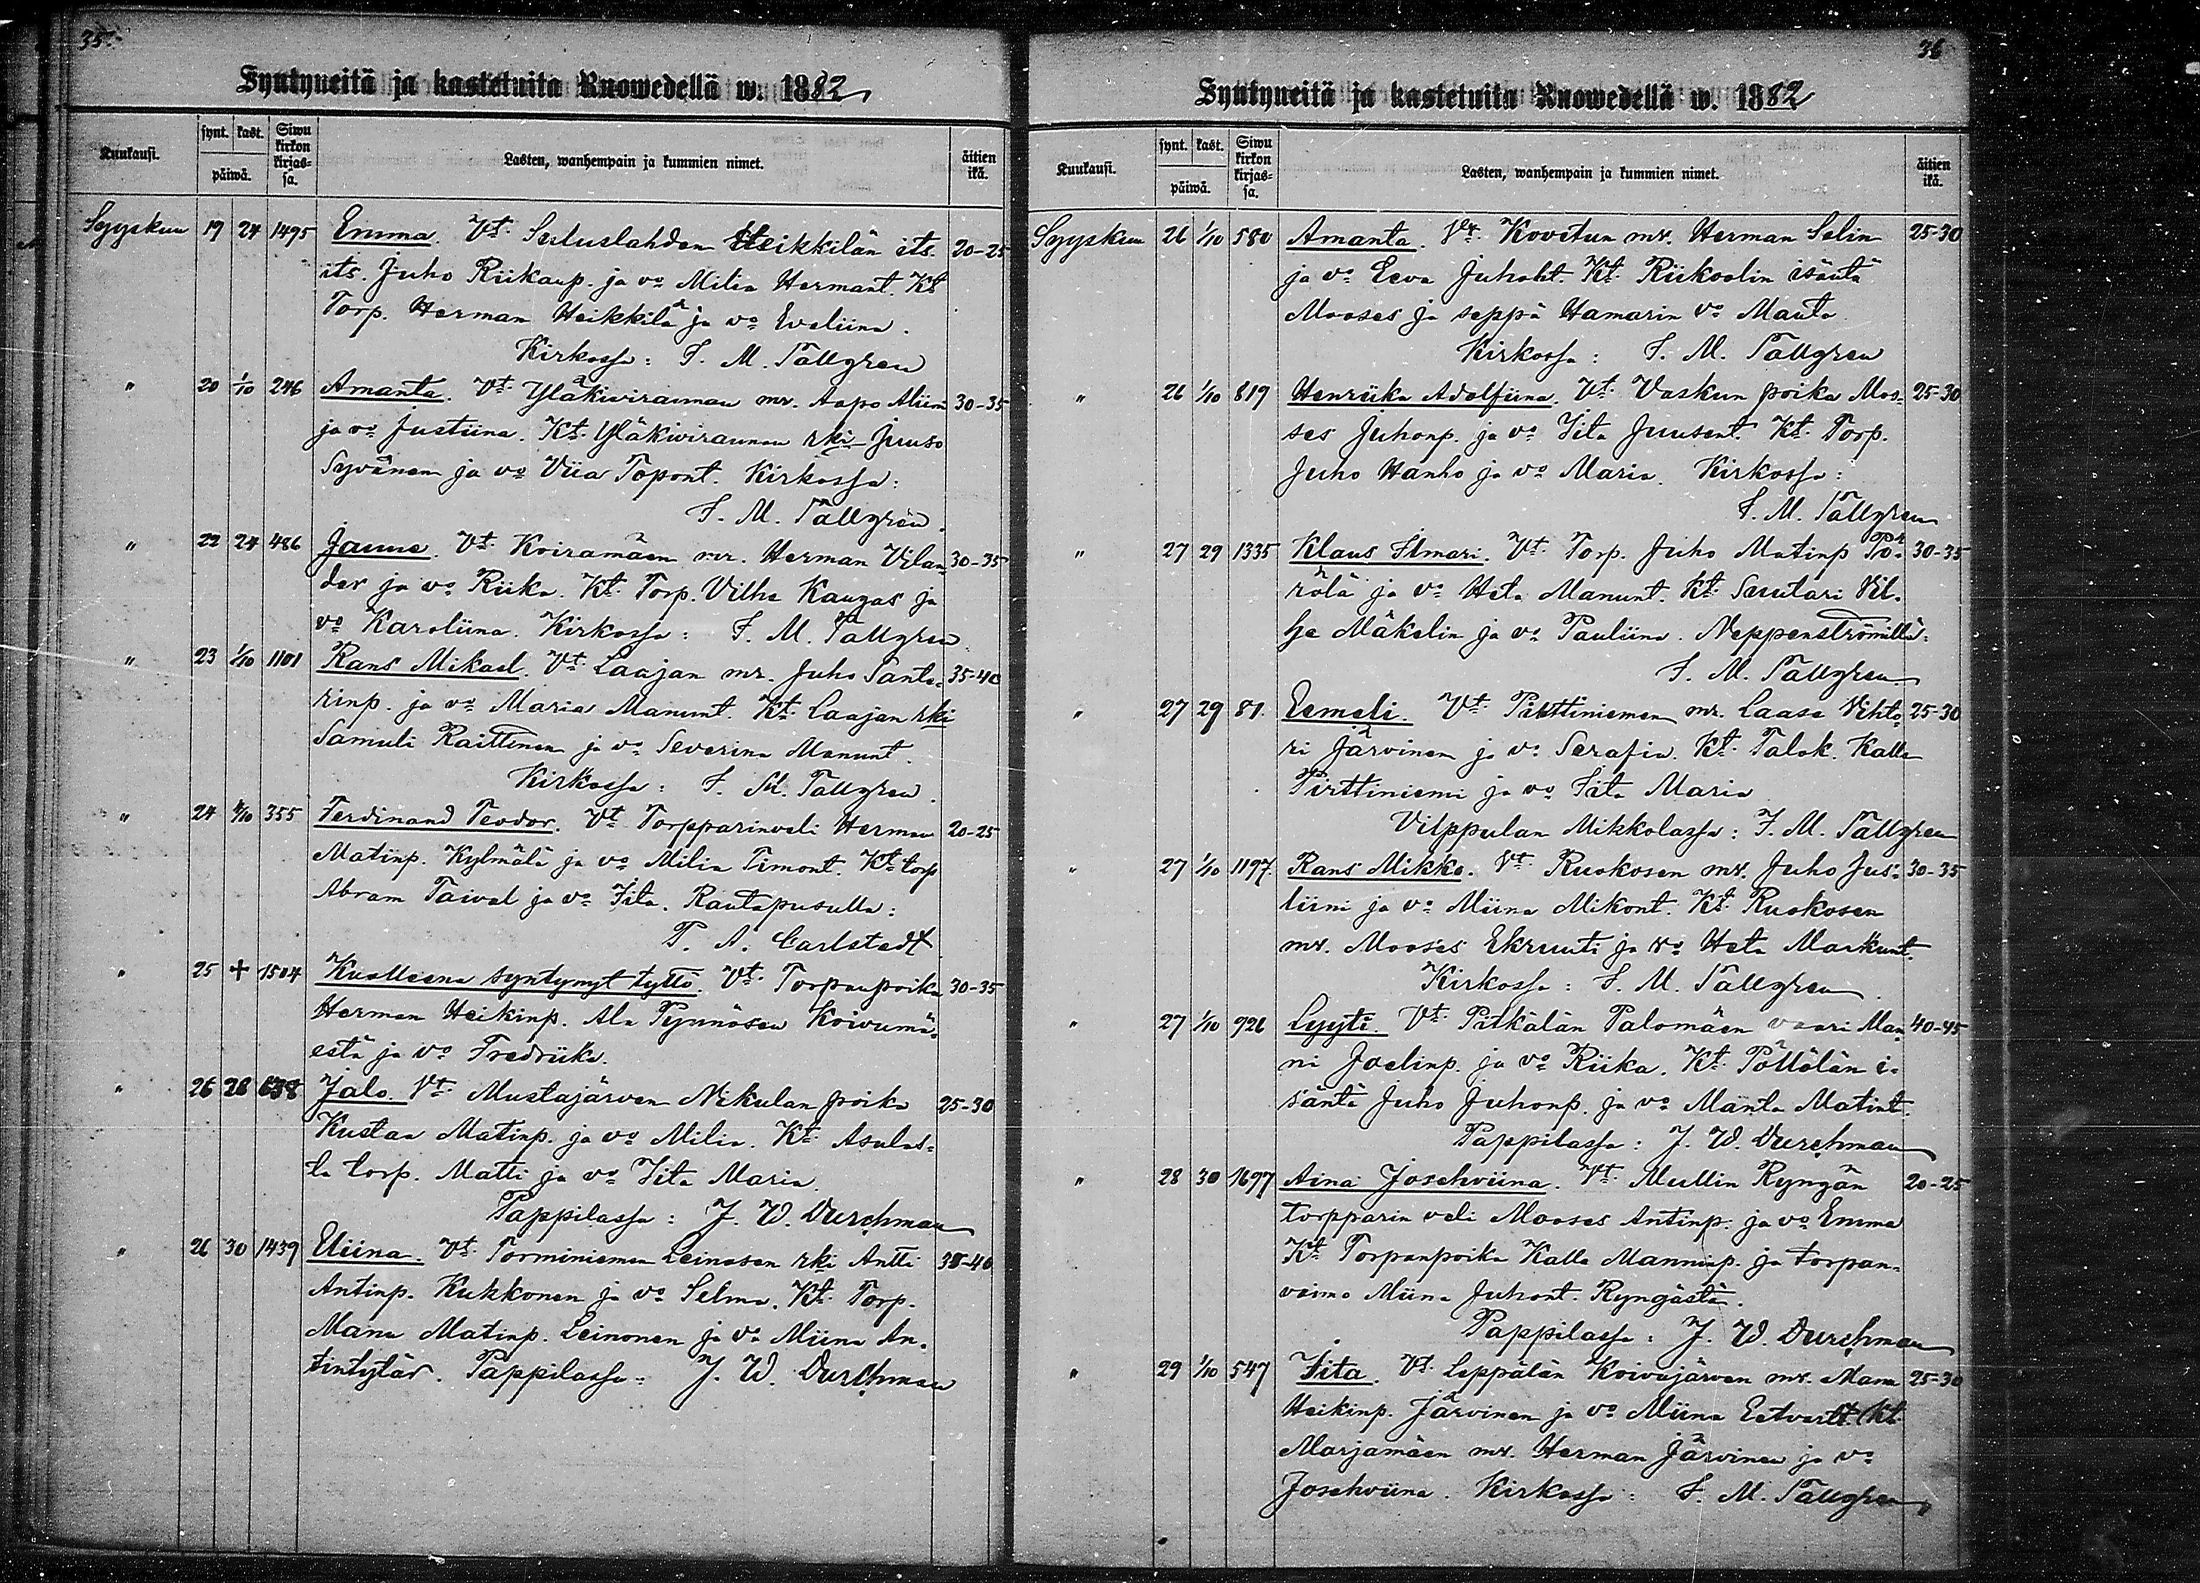 35.
Syntyneitä ja kastetuita Ruowedellä w. 1882
Kuukausi. synt. kast. päiwä. Siwu kirkon kirjas- sa. Lasten, wanhempain ja kummien nimet. äitien ikä.
Syyskuu 19 24 1495 Emma. Vt. Heikkilän its. 20-25
its. Juho Riikanp. ja vo Milia Hermant. Kt.
Torp. Herman Heikkilä ja vo Eveliina.
Kirkossa: F. M. Tallgren
" 20 1/10 246 Amanta. Vt. Yläkivirannan mr. Aapo Aliini 30-35
ja vo Justiina. Kt. Yläkivirannan rki Juuso
Syvänen ja vo Viia Topont. Kirkossa:
F. M. Tallgren.
" 22 24 486 Janne. Vt. Koiramäen mr. Herman Vilan- 30-35
der ja vo Riika. Kt. Torp. Vilhe Kangas ja
vo Karoliina. Kirkossa: F. M. Tallgren
" 23 1/10 1101 Rans Mikael. Vt. Laajan mr. Juho Santa- 35-40
rinp. ja vo Maria Manunt. Kt. Laajan rki
Samuli Raittinen ja vo Severina Manunt.
Kirkossa: F. M. Tallgren.
" 24 4/10 355 Ferdinand Teodor. Vt. Torpparinveli Herman 20-25
Matinp. Kylmälä ja vo Milia Timont. Kt. torp
Abram Taival ja vo Iita. Rautapusulla:
T. A. Carlstedt
" 25 + 1504 Kuolleena syntynyt tyttö. Vt. Torpanpoika 30-35
Herman Heikinp. Ala Pynnösen Koivumä-
estä ja vo Fredriika.
" 26 28 638 Jalo. Vt. Mustajärven Nikulan poika 25-30
Kustaa Matinp. ja vo Milia. Kt. Asulas-
ta torp. Matti ja vo Iita Maria.
Pappilassa: J. W. Durchman
" 26 30 1439 Eliina. Vt. Torminiemen Leinosen rki Antti 35-40
Antinp. Kukkonen ja vo Selma. Kt. Torp.
Manu Matinp. Leinonen ja vo Miina An-
tintytär. Pappilassa: J. W. Durchman
36
Syntyneitä ja kastetuita Ruowedellä w. 1882
Kuukausi. synt. kast. päiwä. Siwu kirkon kirjas- sa. Lasten, wanhempain ja kummien nimet. äitien ikä.
Syyskuu 26 1/10 580 Amanta. Vt. Kovetun mr. Herman Selin 25-30
ja vo Eeva Juhoht. Kt. Riikoolin isäntä
Mooses ja seppä Hamarin vo Manta.
Kirkossa: F. M. Tallgren
" 26 1/10 819 Henriika Adolfiina. Vt. Vaskun poika Moo- 25-30
ses Juhonp. ja vo Iita Juusent. Kt. Torp.
Juho Hanho ja vo Maria. Kirkossa:
F. M. Tallgren
" 27 29 1335 Klaus Ilmari. Vt. Torp. Juho Matinp Pö- 30-35
rölä ja vo Heta Manunt. Kt. Suutari Vil-
he Mäkelin ja vo Pauliina. Neppenströmillä:
F. M. Tallgren
" 27 29 81. Eemeli. Vt. Pirttiniemen mr. Laase Vihto- 25-30
ri Järvinen ja vo Serafia. Kt. Talok. Kalle
Pirttiniemi ja vo Iita Maria
Vilppulan Mikkolassa: F. M. Tallgren
" 27 1/10 1197. Rans Mikko. Vt. Ruokosen mr. Juho Jus- 30-35
liini ja vo Miina Mikont. Kt. Ruokosen
mr. Mooses Ekruuti ja vo Heta Markunt.
Kirkossa: F. M. Tallgren.
" 27 1/10 926 Lyyti. Vt. Pitkälän Palomäen vaari Man- 40-45
ni Joelinp. ja vo Riika. Kt. Pöllölän i-
säntä Juho Juhonp. ja vo Manta Matint.
Pappilassa: J. W. Durchman
" 28 30 1697 Aina Josehviina. Vt. Mullin Ryngän 20-25
torpparin veli Mooses Antinp. ja vo Emma
Kt. Torpanpoika Kalle Manninp. ja torpan-
vaimo Miina Juhont. Ryngästä.
Pappilassa: J. W. Durchman
" 29 1/10 547 Iita. Vt. Leppälän Koivujärven mr. Manu 25-30
Heikinp. Järvinen ja vo Miina Eetvartt. Kt.
Marjamäen mr. Herman Järvinen ja vo
Josehviina. Kirkossa: F. M. Tallgren